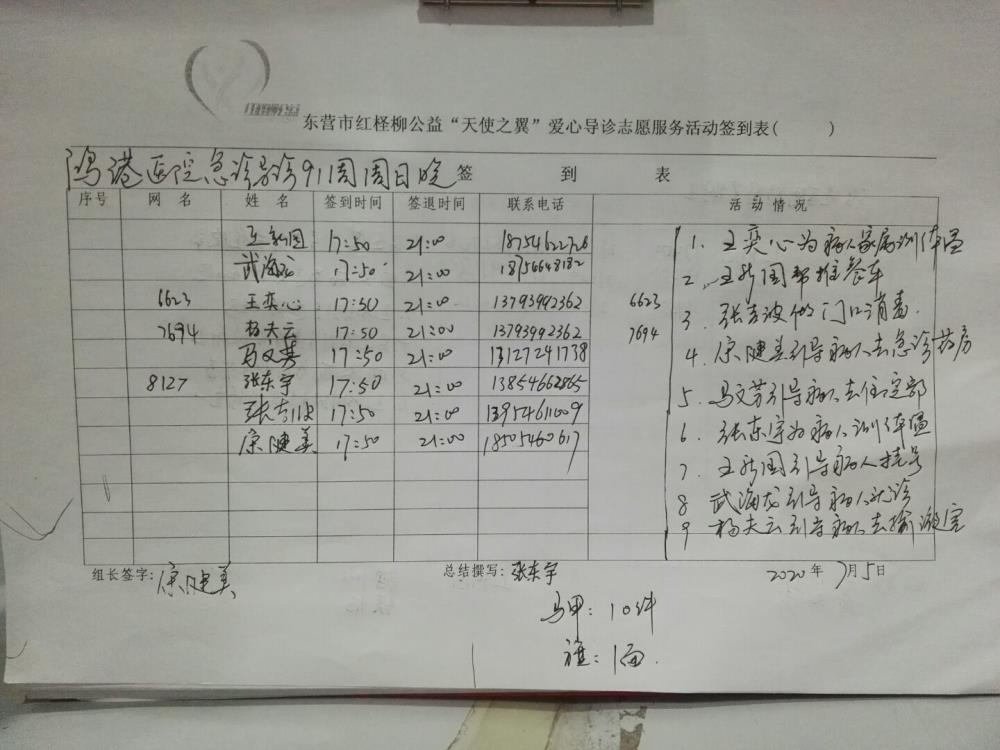 红柽柳公益
东营市红柽柳公益“天使之翼”爱心导诊志愿服务活动签到表( )
鸿港医院急诊导诊91周周日晚 签 到 表
序号 网 名 姓 名 签到时间 签退时间 联系电话 活 动 情 况
王新国 17:50 21:00 18754622726
武海龙 17:50 21:00 18754648182
6623 王奕心 17:50 21:00 13793992362 6623
7694 杨夫云 17:50 21:00 13793992362 7694
马文芳 17:50 21:00 13127241738
8127 张东宇 17:50 21:00 13854662865
张吉波 17:50 21:00 13954611009
原健美 17:50 21:00 18505460617
1. 王奕心为病人家属测体温
2. 王新国帮推餐车
3. 张吉波做门口消毒.
4. 原健美引导病人去急诊药房
5. 马文芳引导病人去住院部
6. 张东宇为病人测体温
7. 王新国引导病人挂号
8 武海龙引导病人就诊
9 杨夫云引导病人去输液室
组长签字: 原健美 总结撰写: 张东宇 2020年 7月5日
马甲: 10件
旗: 1面.